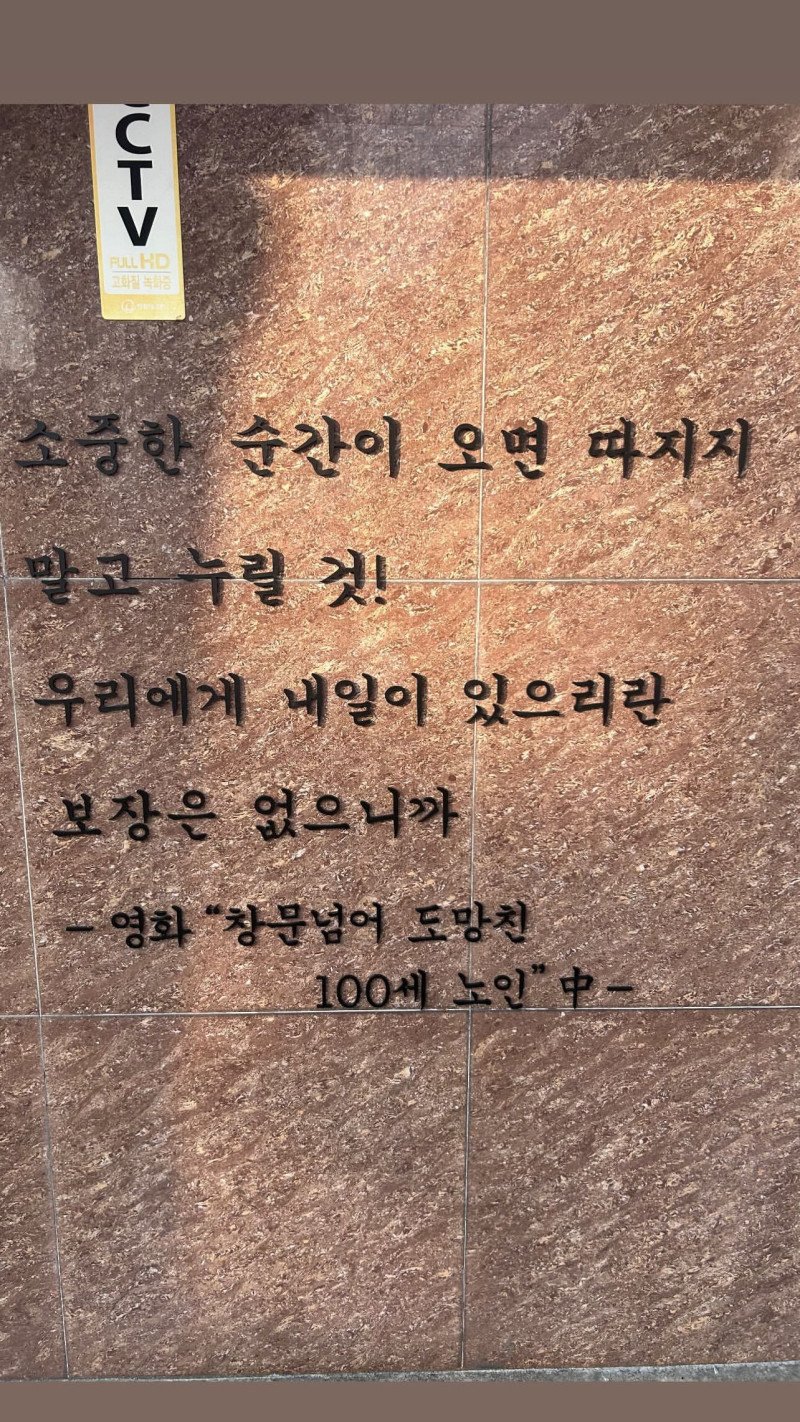 CTV
FULL HD
고화질 녹화중
소중한 순간이 오면 따지지
말고 누릴 것!
우리에게 내일이 있으리란
보장은 없으니까
- 영화 "창문넘어 도망친
100세 노인" 中 -